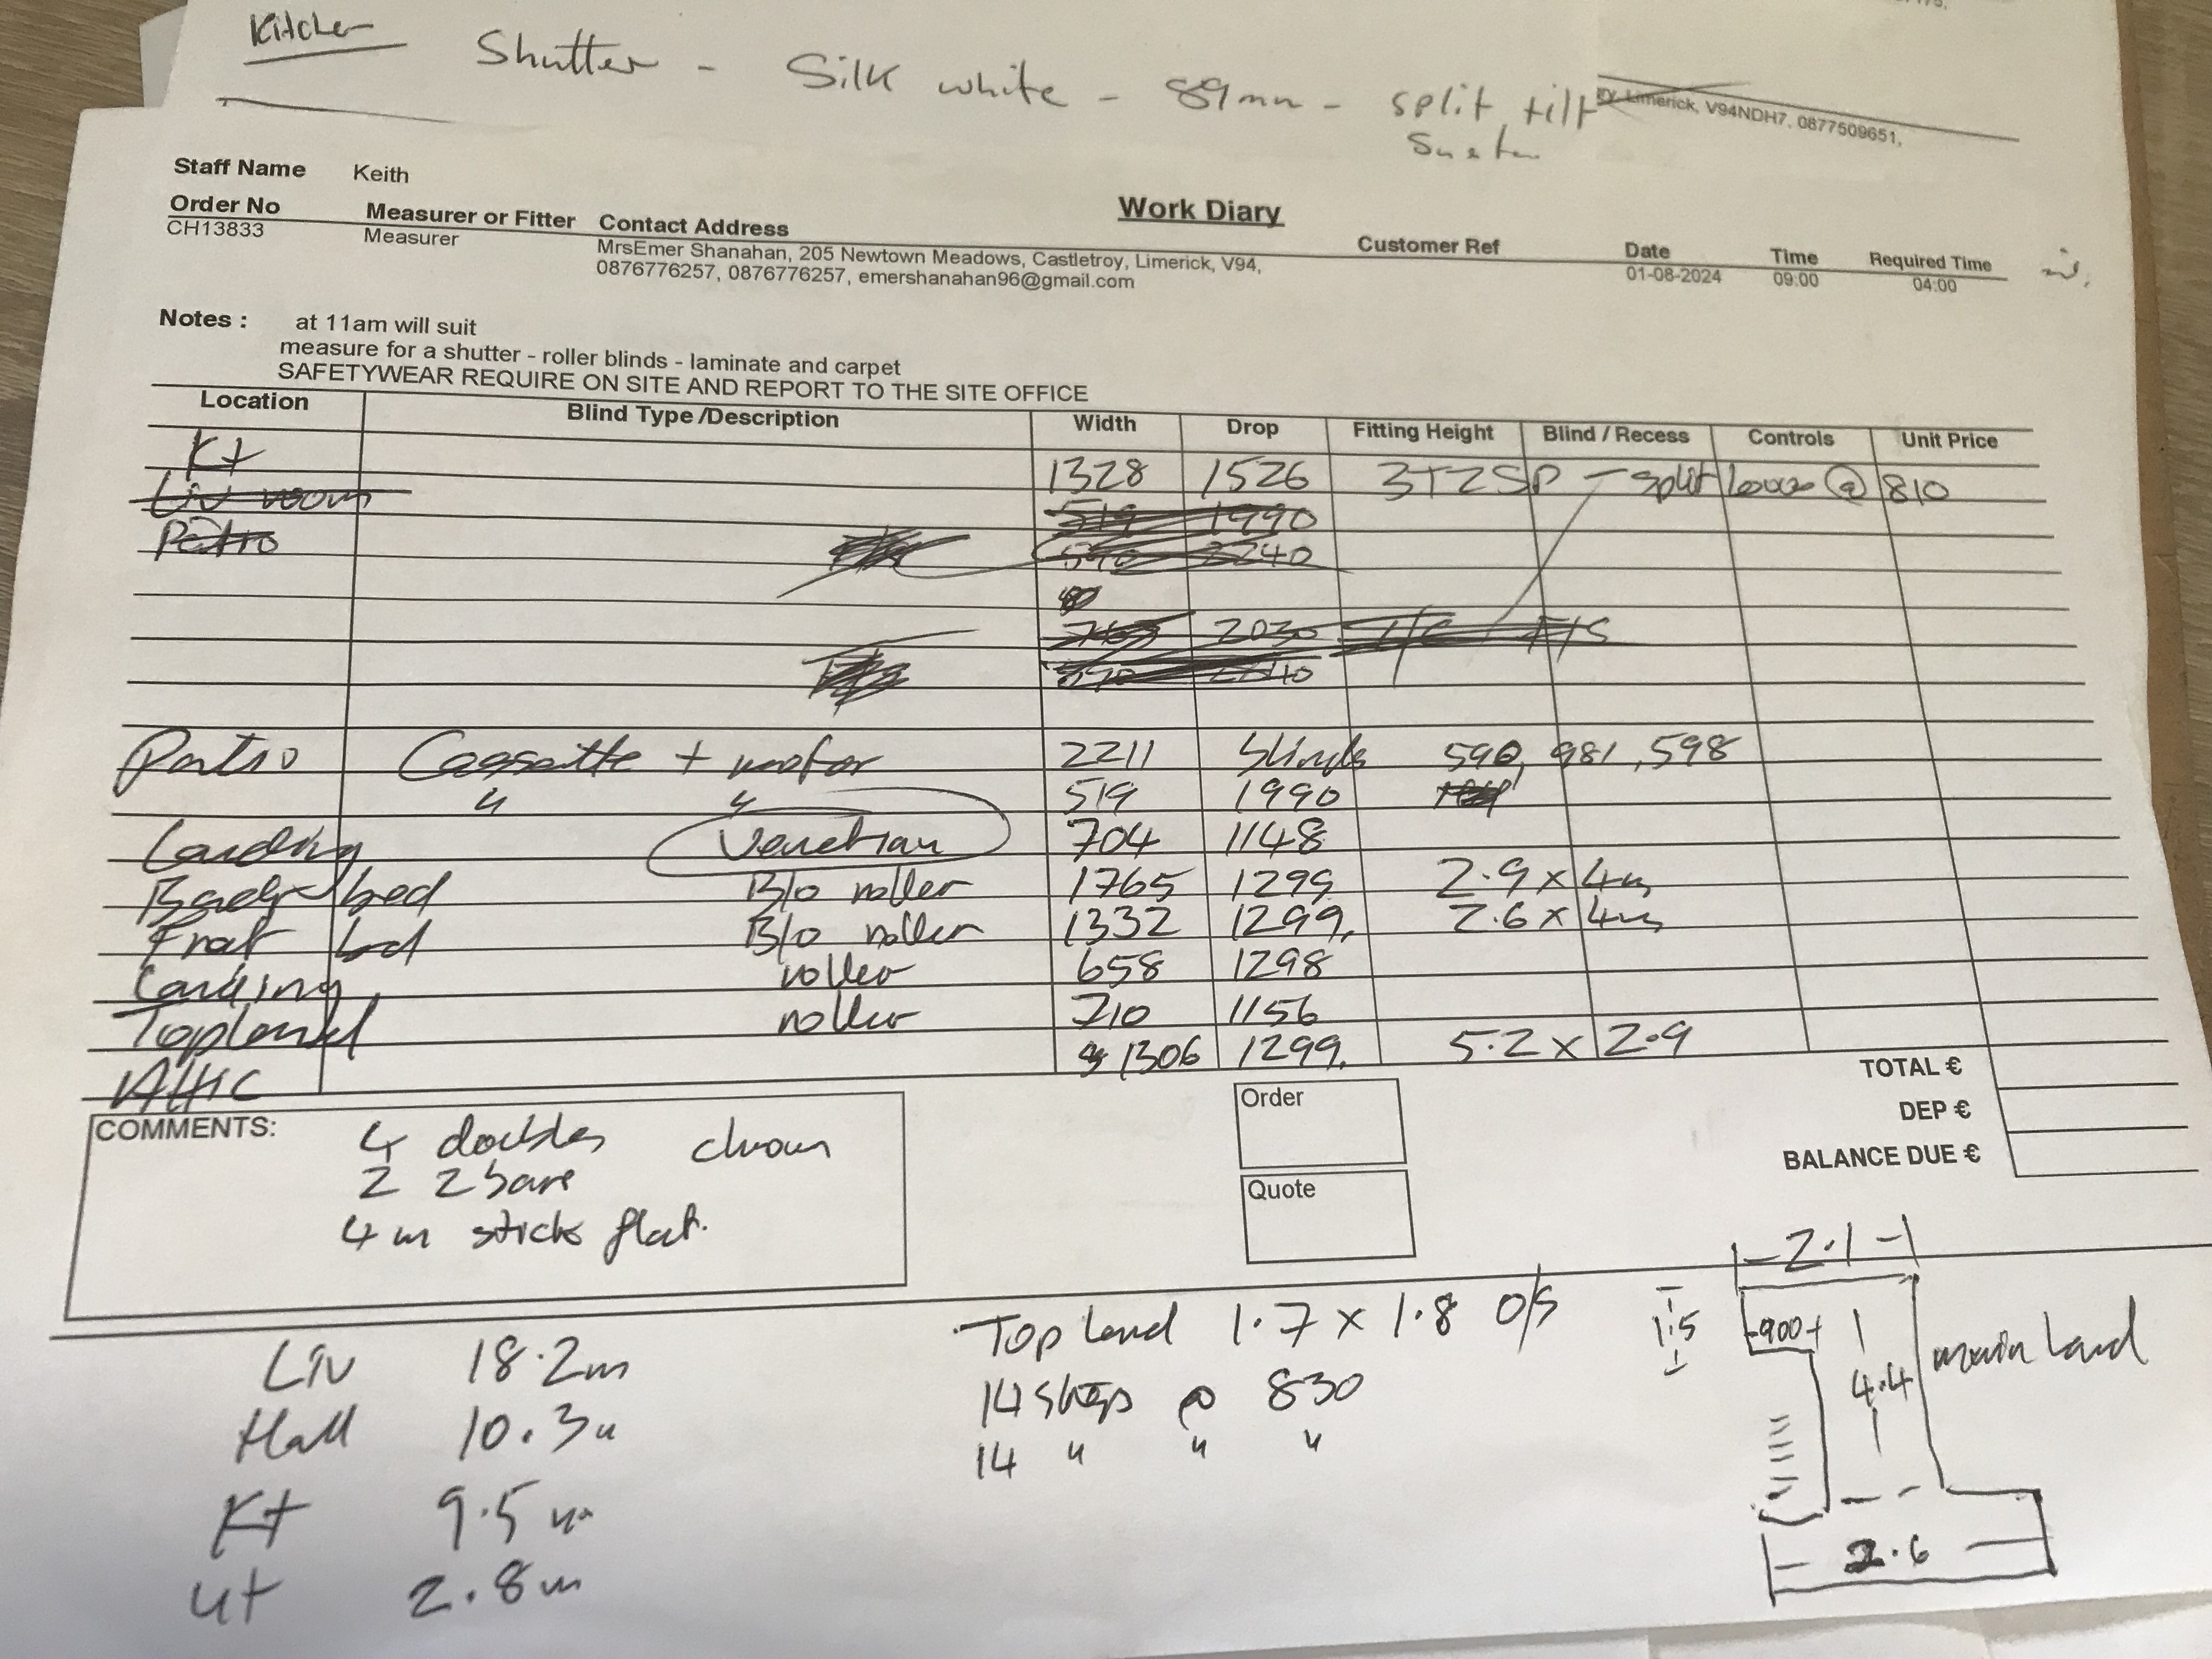 Kitchen
Shutter - Silk white - 89mm - split tilt
Limerick, V94NDH7, 0877509651,
Staff Name Keith
Work Diary
Order No Measurer or Fitter Contact Address Customer Ref Date Time Required Time
CH13833 Measurer MrsEmer Shanahan, 205 Newtown Meadows, Castletroy, Limerick, V94, 01-08-2024 09:00 04:00
0876776257, 0876776257, emershanahan96@gmail.com
Notes : at 11am will suit
measure for a shutter - roller blinds - laminate and carpet
SAFETYWEAR REQUIRE ON SITE AND REPORT TO THE SITE OFFICE
Location Blind Type /Description Width Drop Fitting Height Blind / Recess Controls Unit Price
Kt 1328 1526 3TZSP - split @ 810
Liv room 519 1990
Patio 2240
2030 F/S
Patio Cassette + motor 2211 blinds 590, 981, 598
" " 519 1990
Landing Venetian 704 1148
Back bed B/o roller 1765 1299 2.9 x 4m
Front bed B/o roller 1332 1299, 2.6 x 4m
Landing roller 658 1298
Top land roller 710 1156
Attic 1306 1299, 5.2 x 2.9
TOTAL €
DEP €
BALANCE DUE €
COMMENTS: 4 doubles chrom
2 2 bars
4 m sticks flat.
Order
Quote
Liv 18.2m
Hall 10.3m
Kt 9.5m
ut 2.8m
Top land 1.7 x 1.8 o/s
14 steps @ 830
14 " " "
2.1
1.5 900 main land
4.4
2.6